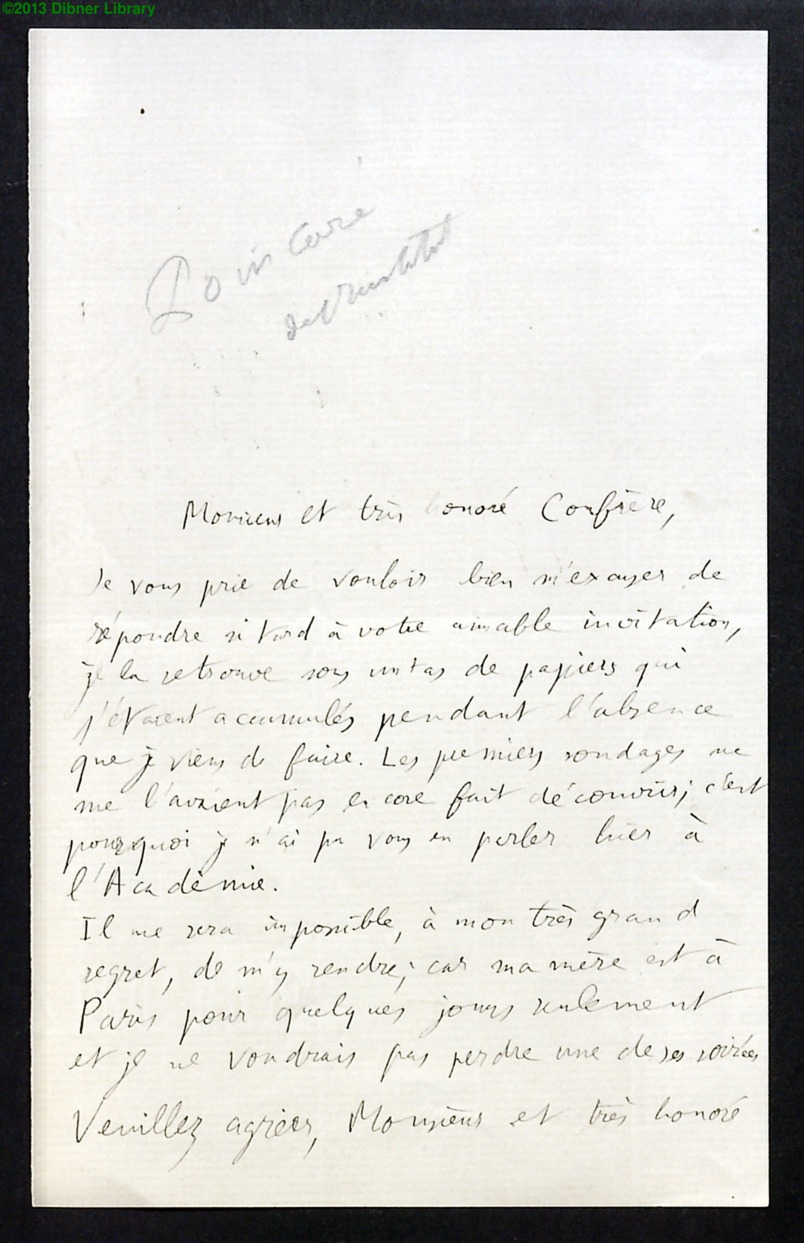 ©2013 Dibner Library
Poincaré
de l'Institut
Monsieur et très honoré Confrère,
Je vous prie de vouloir bien m'excuser de
répondre si tard à votre aimable invitation,
je la retrouve sous un tas de papiers qui
s'étaient accumulés pendant l'absence
que je viens de faire. Les premiers sondages ne
me l'avaient pas encore fait découvrir; c'est
pourquoi je n'ai pu vous en parler hier à
l'Académie.
Il me sera impossible, à mon très grand
regret, de m'y rendre; car ma mère est à
Paris pour quelques jours seulement
et je ne voudrais pas perdre une de ses soirées
Veuillez agréer, Monsieur et très honoré